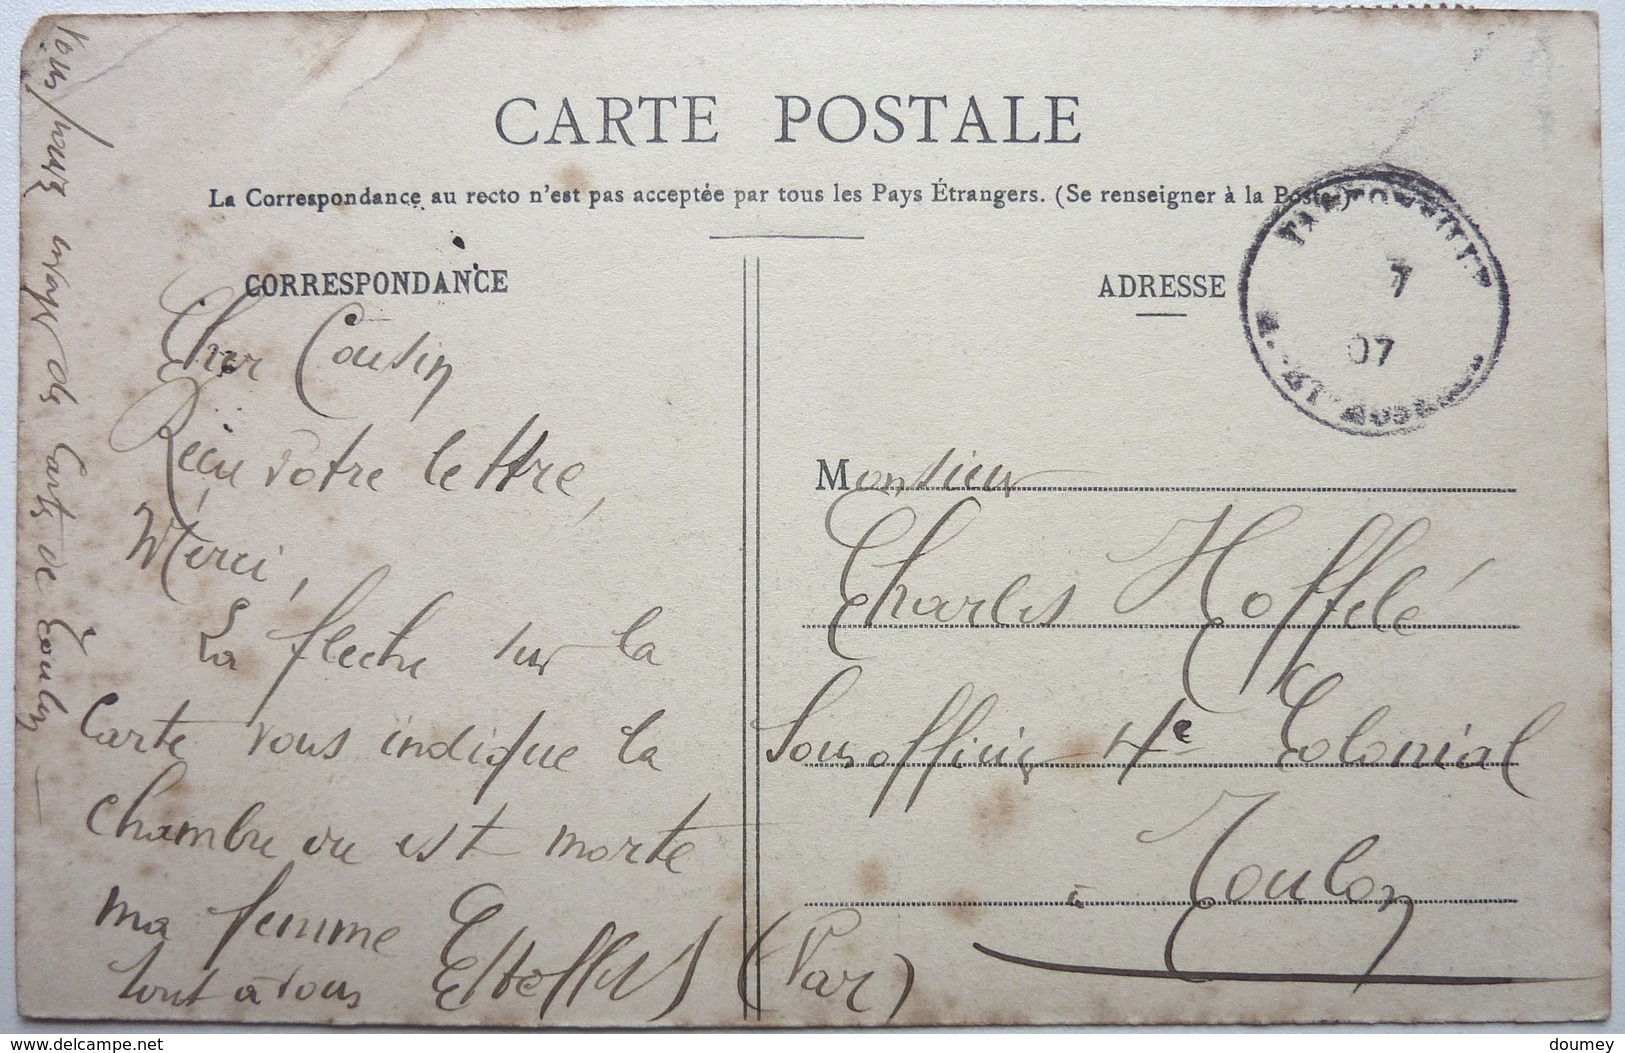 CARTE POSTALE
La Correspondance au recto n'est pas acceptée par tous les Pays Étrangers. (Se renseigner à la Poste.)
CORRESPONDANCE
ADRESSE
7
07
Cher Cousin
Reçu votre lettre,
Merci,
La fleche sur la
Carte vous indique la
chambre ou est morte
ma femme
tout à vous
Monsieur
Charles Hoffelé
Sousofficier 4e Colonial
à Toulon
(Var)
Vous pouvez de Carte de Toulon
www.delcampe.net
doumey